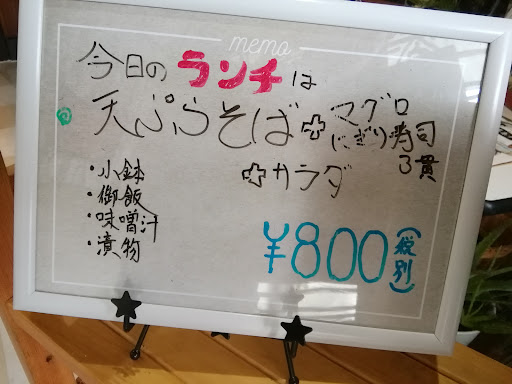 memo
今日のランチは
天ぷらそば+マグロ
にぎり寿司
3貫
+サラダ
・小鉢
・御飯
・味噌汁
・漬物
¥800(税別)